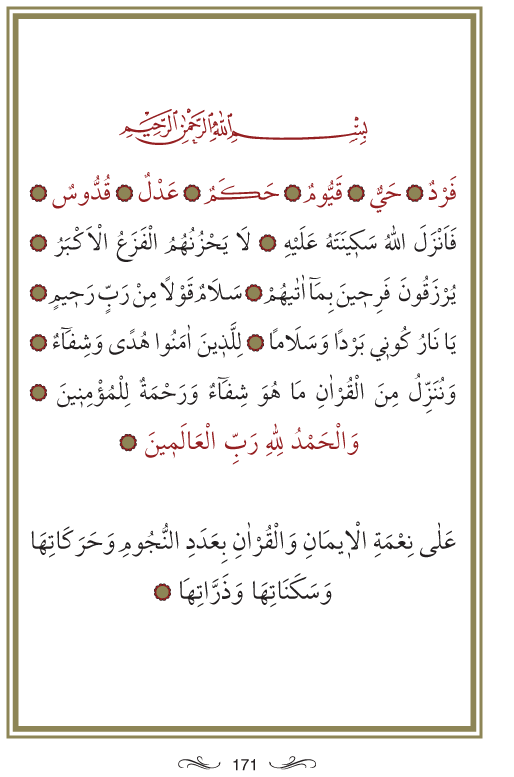 بِسْمِ اللهِ الرَّحْمٰنِ الرَّحِيمِ
فَرْدٌ ۞ حَيٌّ ۞ قَيُّومٌ ۞ حَكَمٌ ۞ عَدْلٌ ۞ قُدُّوسٌ ۞
فَاَنْزَلَ اللهُ سَكِينَتَهُ عَلَيْهِ ۞ لَا يَحْزُنُهُمُ الْفَزَعُ الْاَكْبَرُ ۞
يُرْزَقُونَ فَرِحِينَ بِمَٓا اٰتٰيهُمْ ۞ سَلَامٌ قَوْلًا مِنْ رَبٍّ رَحِيمٍ ۞
يَا نَارُ كُونِي بَرْدًا وَسَلَامًا ۞ لِلَّذِينَ اٰمَنُوا هُدًى وَشِفَٓاءٌ ۞
وَنُنَزِّلُ مِنَ الْقُرْاٰنِ مَا هُوَ شِفَٓاءٌ وَرَحْمَةٌ لِلْمُؤْمِنِينَ ۞
وَالْحَمْدُ لِلهِ رَبِّ الْعَالَمِينَ ۞
عَلٰى نِعْمَةِ الْاِيمَانِ وَالْقُرْاٰنِ بِعَدَدِ النُّجُومِ وَحَرَكَاتِهَا
وَسَكَنَاتِهَا وَذَرَّاتِهَا ۞
171